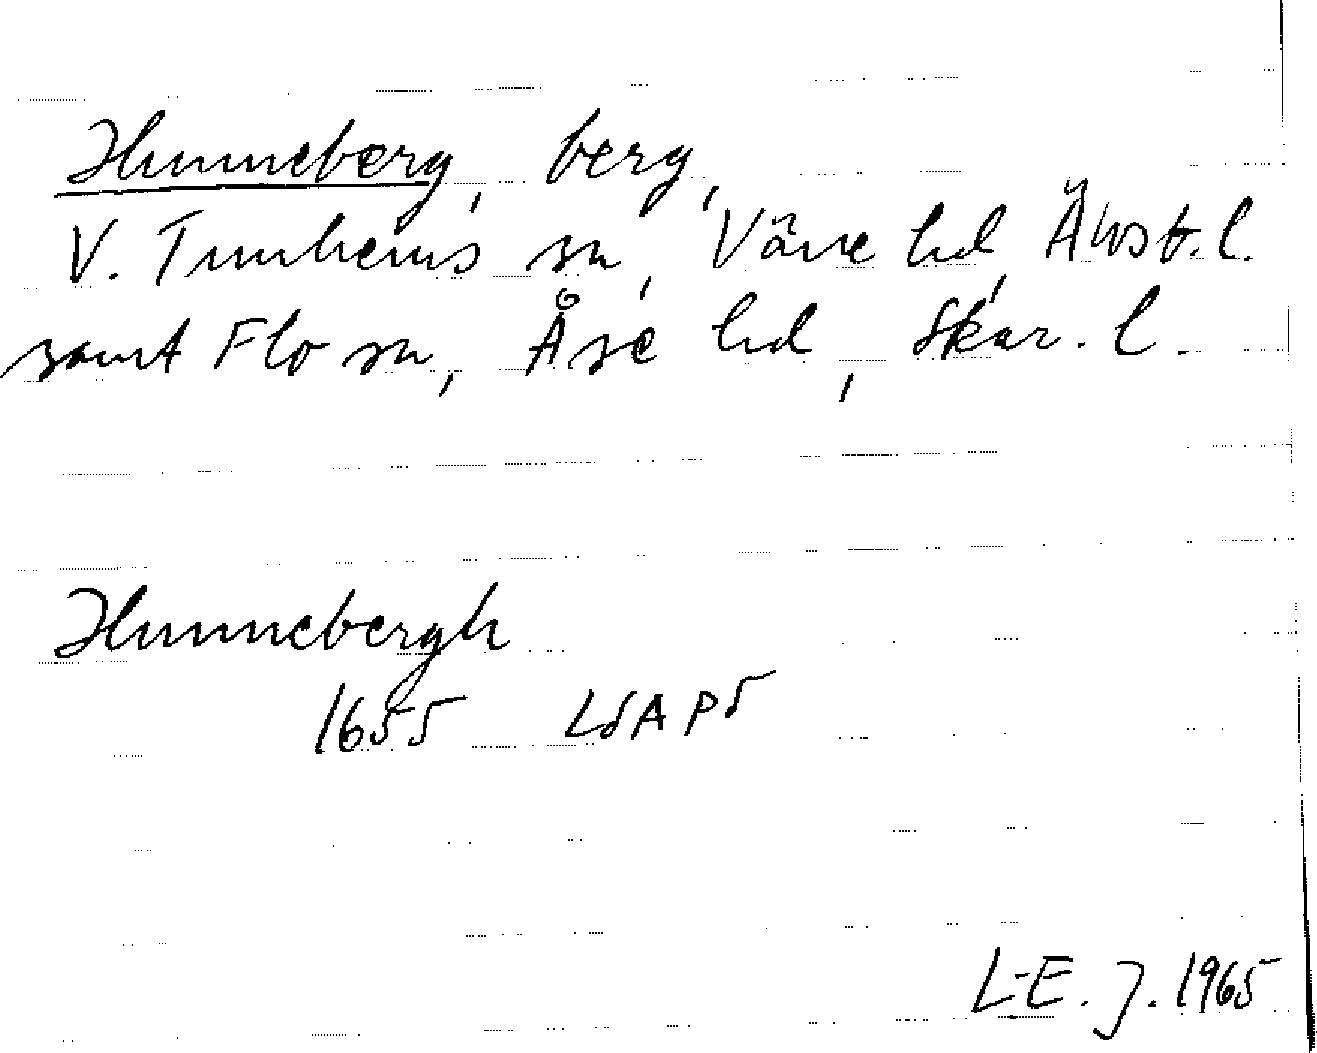 Hunneberg, berg,
V. Tunhems sn, Väne hd, Älvsb.l.
samt Flo sn, Åse hd, Skar. l.
Hunnebergh
1655 LSA P5
L-E. J. 1965